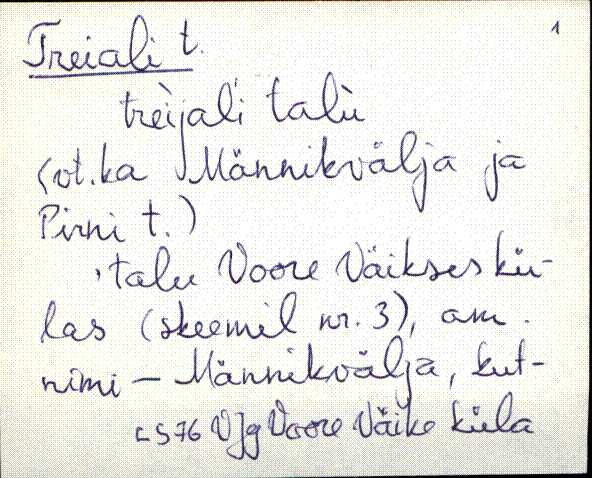 1
Treiali t.
trèijali talù
(vt. ka Männikvälja ja
Pirni t.)
talu Voore Väikseskü-
las (skeemil nr. 3), am.
nimi – Männikvälja, kut-
1976 VJg Voore Väike küla